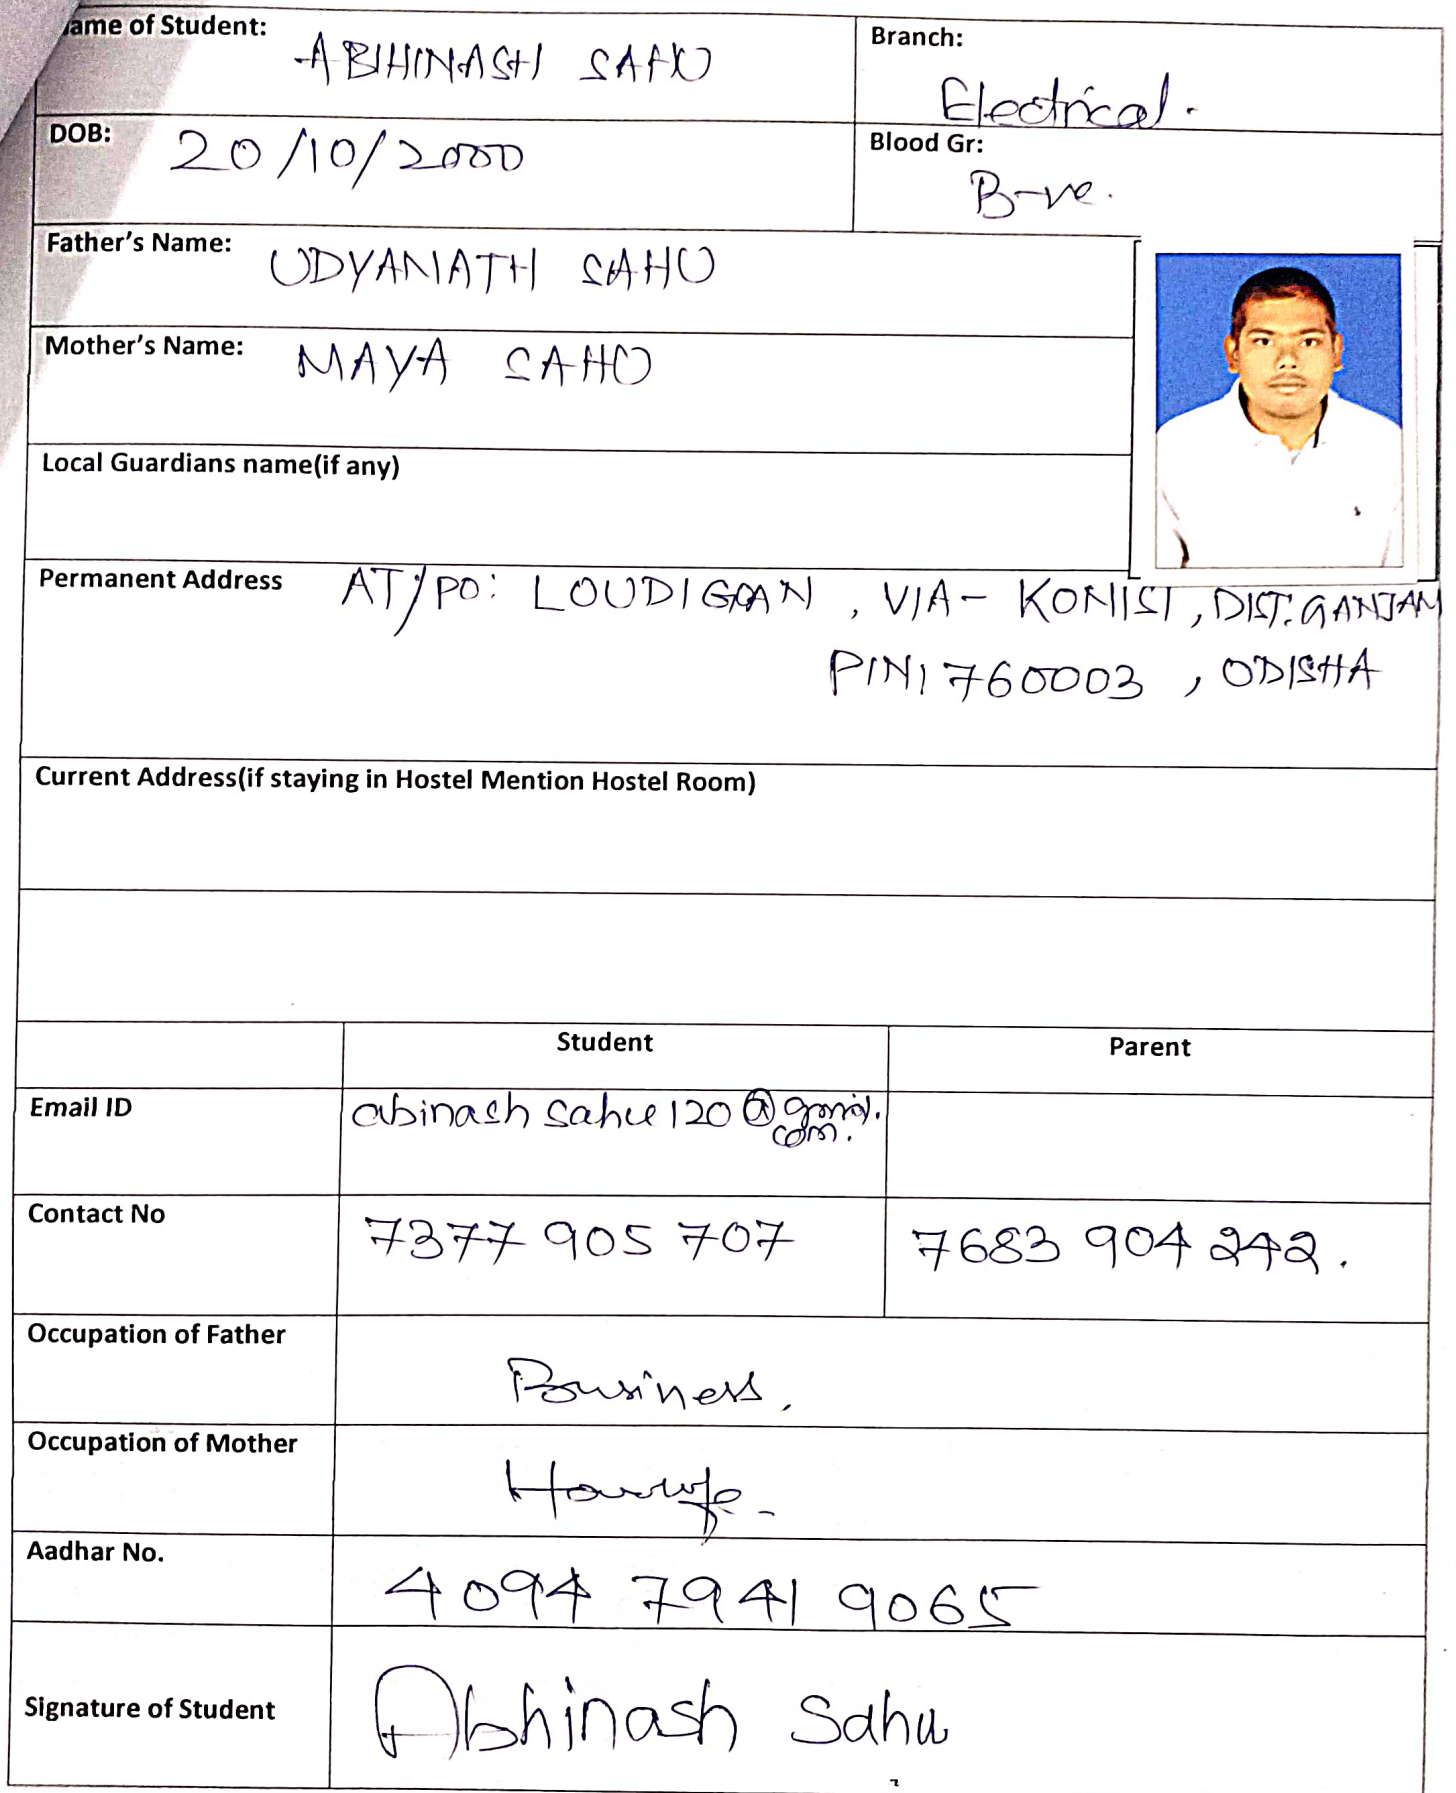 ame of Student: ABHINASH SAHU
Branch: Electrical.
DOB: 20/10/2000
Blood Gr: B-ve.
Father's Name: UDYANATH SAHU
Mother's Name: MAYA SAHU
Local Guardians name(if any)
Permanent Address AT/PO: LOUDIGAAN, VIA- KONISI, DIST. GANJAM
PIN: 760003, ODISHA
Current Address(if staying in Hostel Mention Hostel Room)
Student Parent
Email ID abinash sahu 120 @gmail.
com.
Contact No 7377 905 707 7683 904 242.
Occupation of Father Business,
Occupation of Mother Housewife -
Aadhar No. 4094 7941 9065
Signature of Student Abhinash Sahu